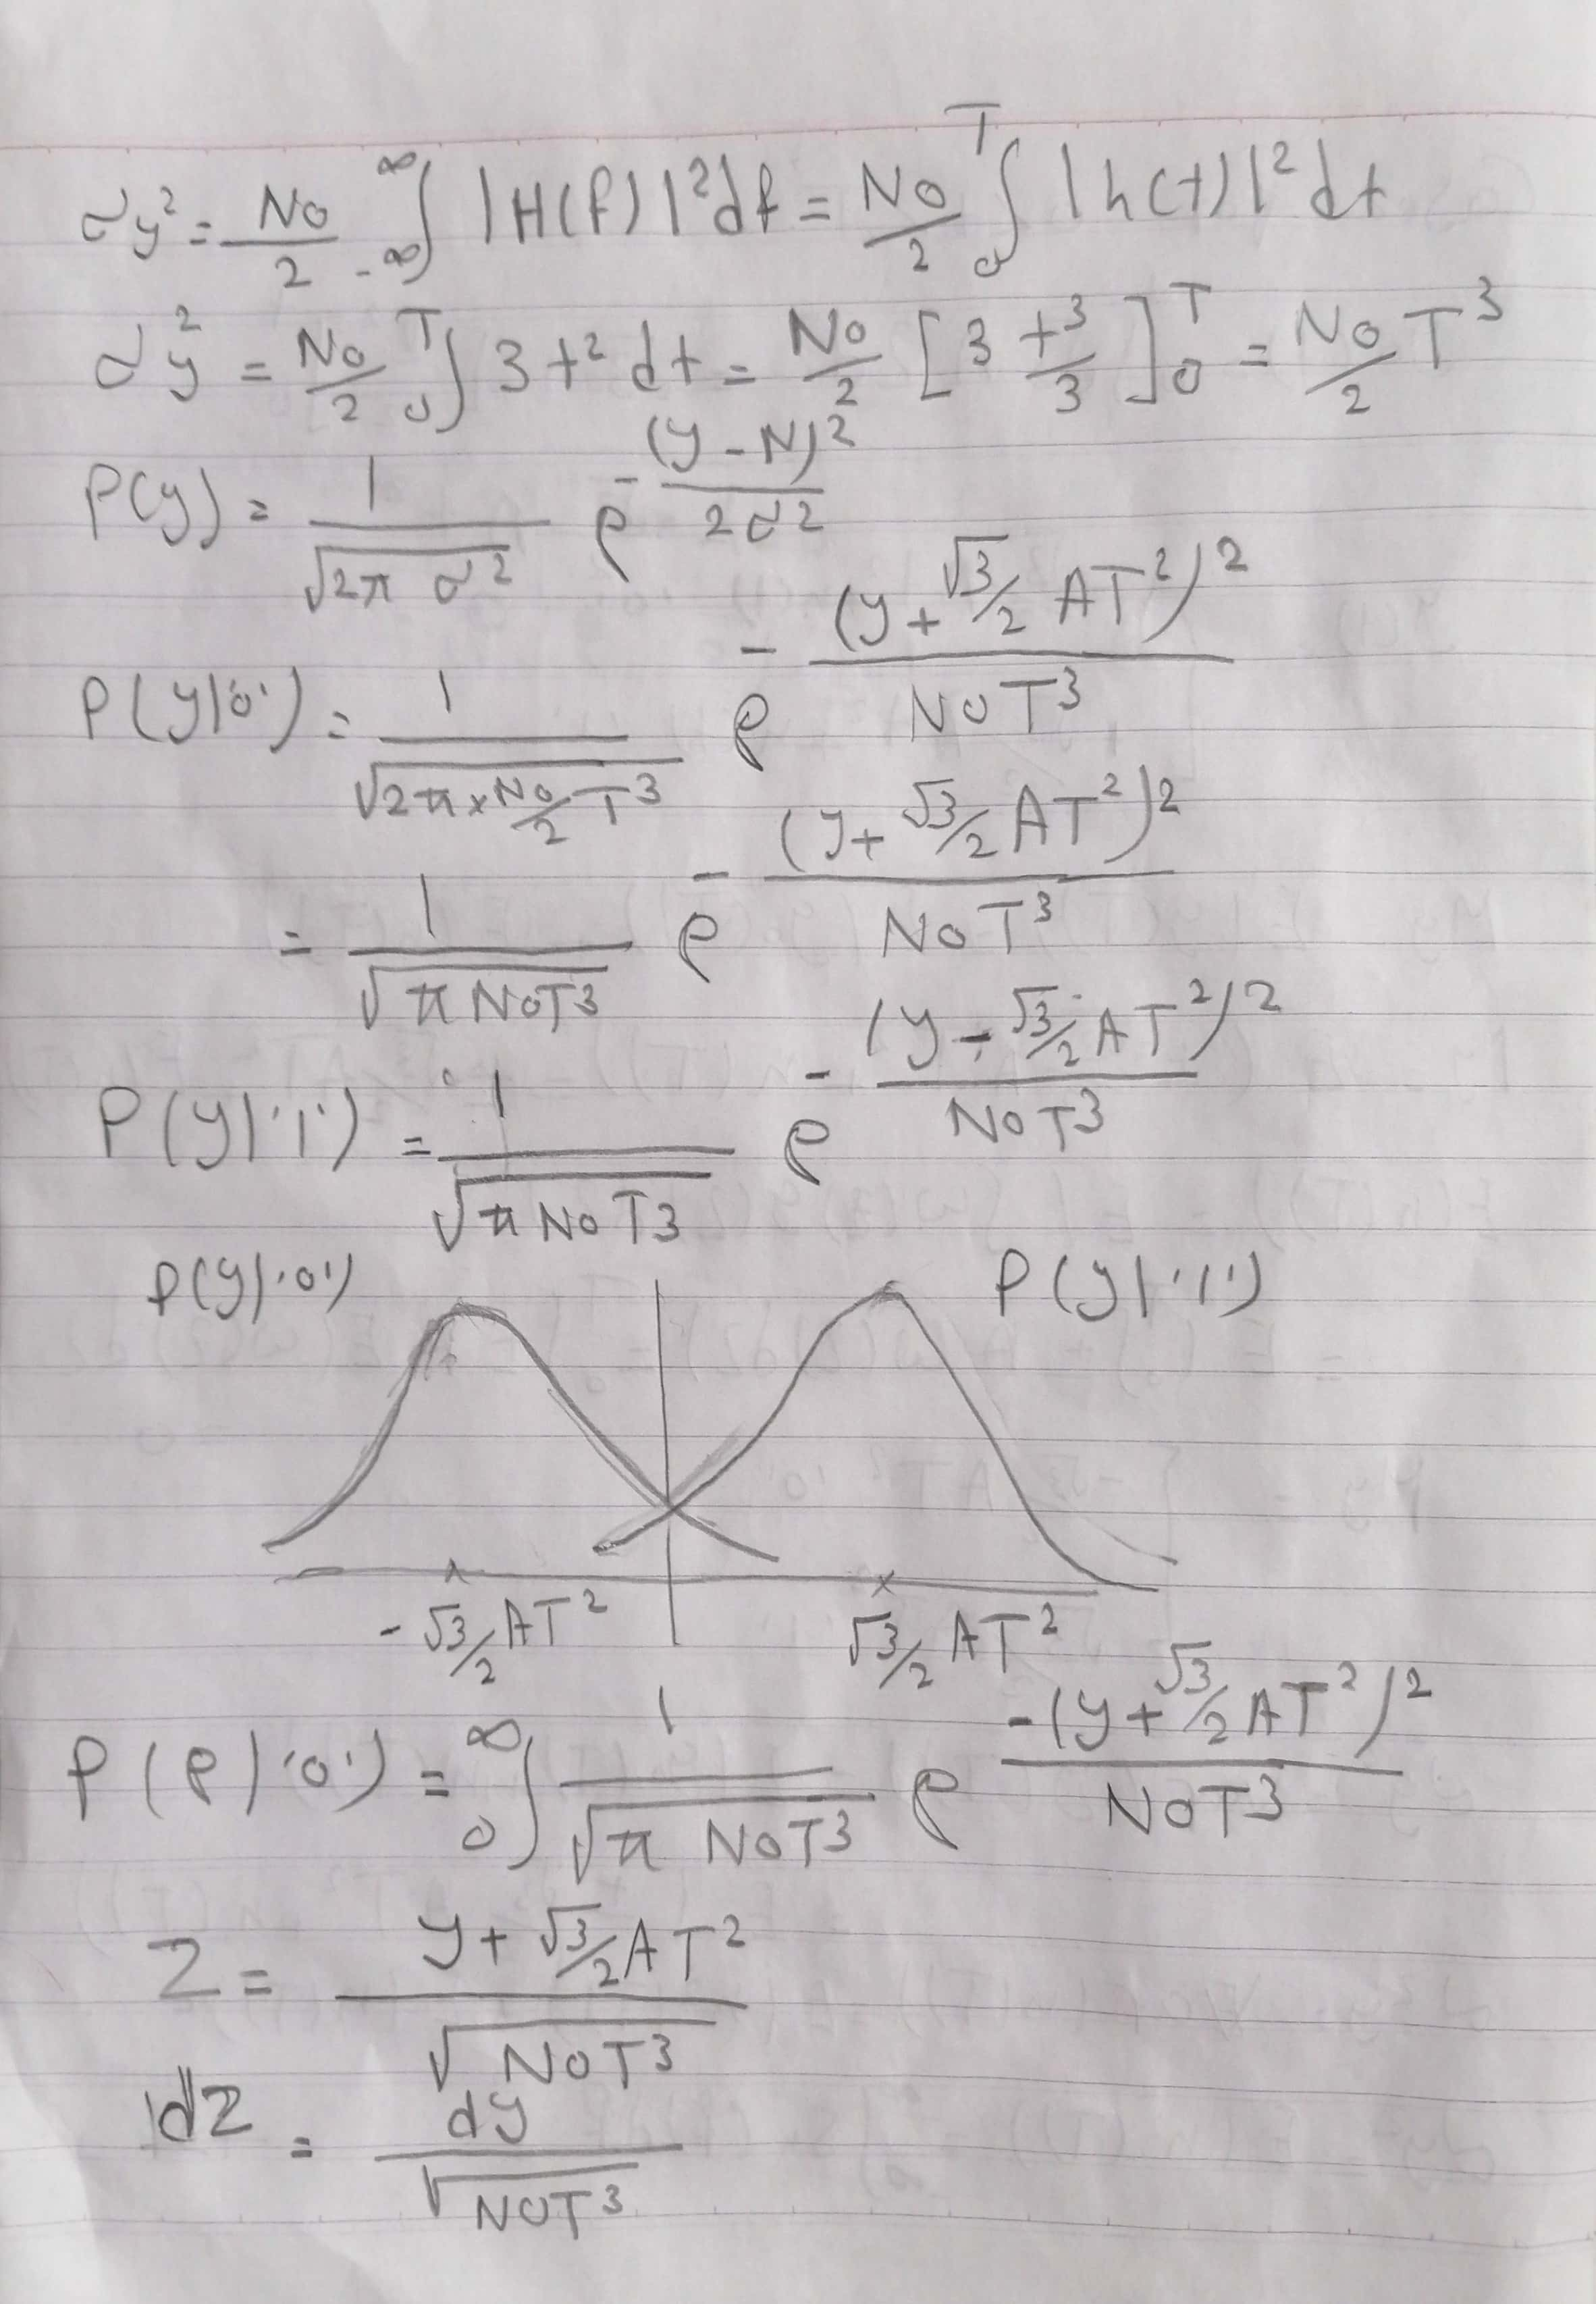 σy² = No/2 -∞∫∞ |H(f)|² df = No/2 0∫T |h(t)|² dt
σy² = No/2 0∫T 3t² dt = No/2 [3 t³/3]0T = No/2 T³
P(y) = 1/√(2π σ²) e^-(y-N)²/2σ²
P(y|'0') = 1/√(2π×No/2 T³) e^-(y+√3/2 AT²)²/NoT³
= 1/√(π NoT³) e^-(y+√3/2 AT²)²/NoT³
P(y|'1') = 1/√(π NoT³) e^-(y-√3/2 AT²)²/NoT³
P(y|'0') P(y|'1')
-√3/2 AT² √3/2 AT²
P(e|'0') = 0∫∞ 1/√(π NoT³) e^-(y+√3/2 AT²)²/NoT³
Z = y+√3/2 AT²/√(NoT³)
dz = dy/√(NoT³)